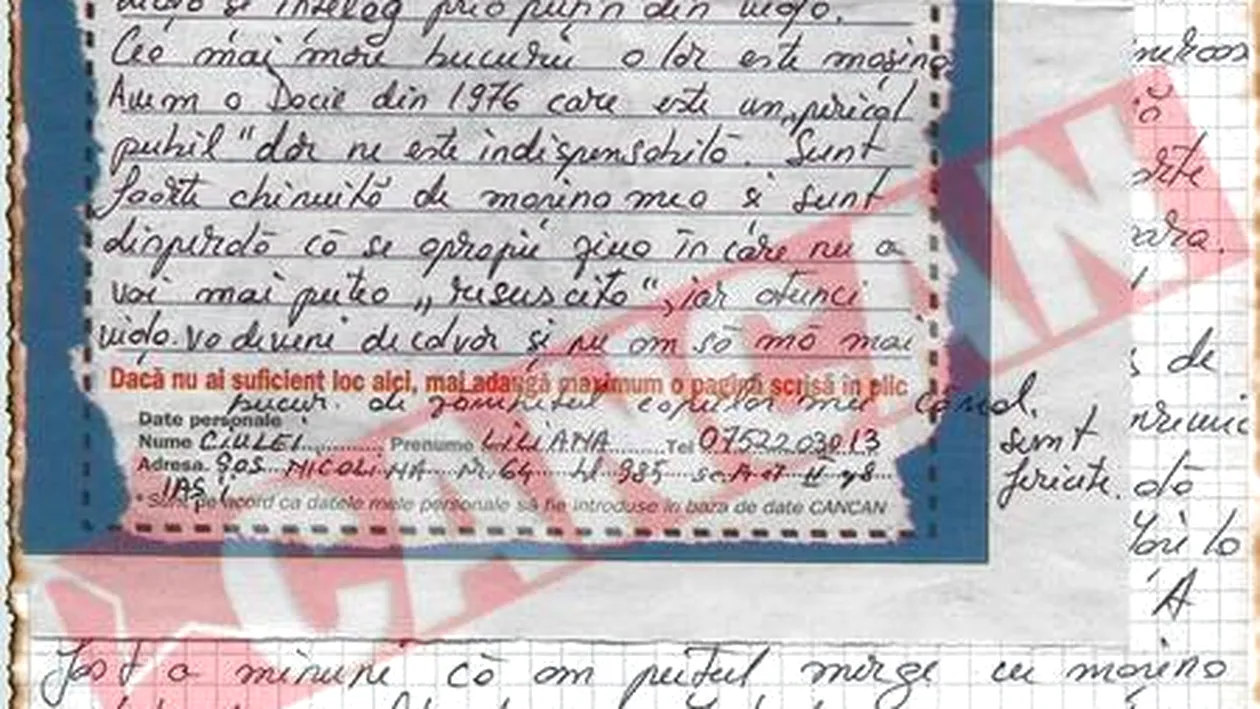 și înțeleg prea puțin din viața.
Cea mai mare bucurie a lor este mașina
Avem o Dacie din 1976 care este un „pericol
public" dar ne este indispensabilă. Sunt
foarte chinuită de mașina mea și sunt
disperată că se apropie ziua în care nu o
voi mai putea „resuscita", iar atunci
viața va deveni de calvar și nu am să mă mai
Dacă nu ai suficient loc aici, mai adaugă maximum o pagină scrisă în plic
bucur. de zâmbetul copiilor mei când
sunt
fericite.
Date personale
Nume CIULEI Prenume LILIANA Tel 0752203013
Adresa. ȘOS NICOLINA Nr. 64 bl 985 sc. A et II
IAȘI
* Sunt de acord ca datele mele personale să fie introduse în baza de date CANCAN
CANCAN
de
A
Fost o minune că am putut merge cu mașina